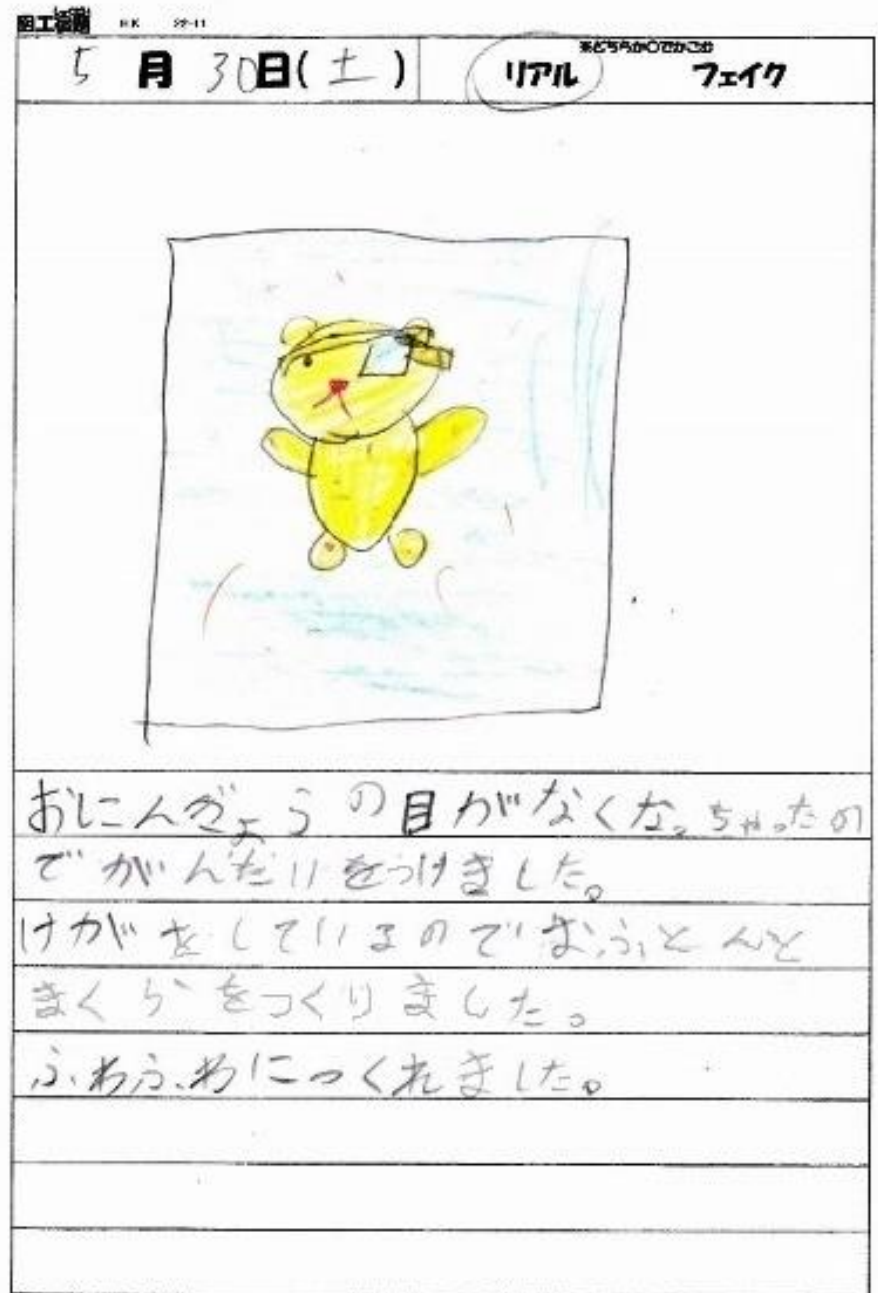 図工宿題
5月30日(土)
※どちらか〇でかこむ
リアル フェイク
おにんぎょうの目がなくなっちゃったの
でがんたいをつけました。
けがをしているのでおふとんと
まくらをつくりました。
ふわふわにつくれました。